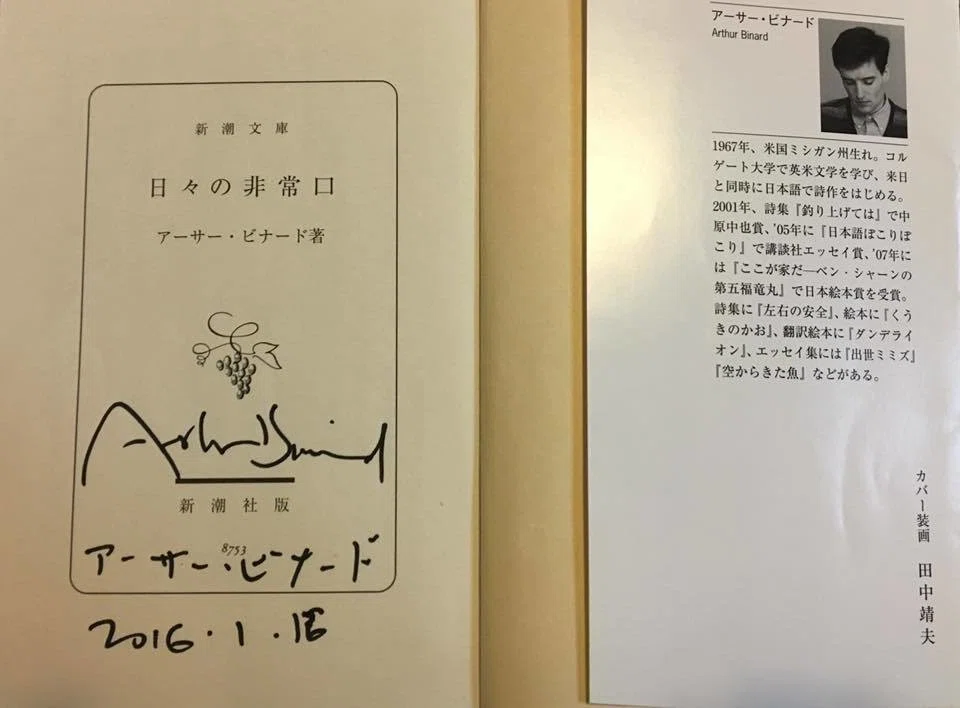 新潮文庫
日々の非常口
アーサー・ビナード著
Arthur Binard
新潮社版
8753
アーサー・ビナード
2016.1.
アーサー・ビナード
Arthur Binard
1967年、米国ミシガン州生れ。コル
ゲート大学で英米文学を学び、来日
と同時に日本語で詩作をはじめる。
2001年、詩集『釣り上げては』で中
原中也賞、'05年に『日本語ぽこりぽ
こり』で講談社エッセイ賞、'07年に
は『ここが家だ―ベン・シャーンの
第五福竜丸』で日本絵本賞を受賞。
詩集に『左右の安全』、絵本に『くう
きのかお』、翻訳絵本に『ダンデライ
オン』、エッセイ集には『出世ミミズ』
『空からきた魚』などがある。
カバー装画　田中靖夫